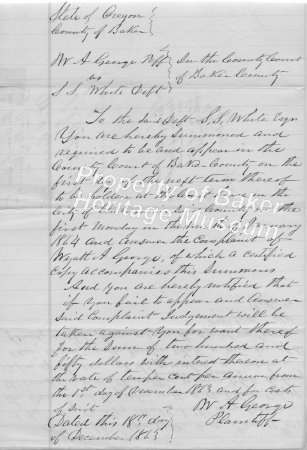 State of Oregon
County of Baker
W A George Plff
vs
S S White Deft
In the County Court
of Baker County
To the said Deft S. S. White Esqr
You are hereby Summoned and
required to be and appear in the
County Court of Baker County on the
first day of the next term thereof
to be holden at the Court House in the
City of County on the
first Monday in the month of January
1864 and Answer the Complaint of
Wyatt A George, of which a certified
Copy accompanies this Summons
And you are hereby notified that
if you fail to appear and answer
Said Complaint Judgement will be
taken against You for want thereof
for the Sum of two hundred and
fifty dollars with interest thereon at
the rate of ten per cent per annum from
the 1st day of December 1863 and for costs
of Suit
Dated this 18th day
of December 1863
W A George
Plaintiff
Property of Baker
Heritage Museum